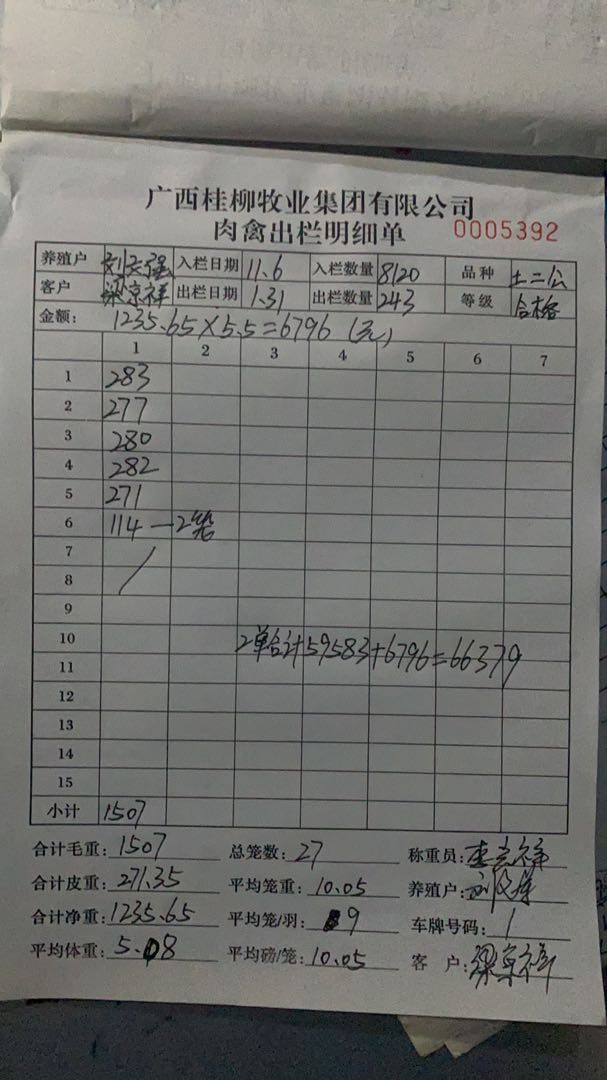 广西桂柳牧业集团有限公司
肉禽出栏明细单 0005392
养殖户 刘天强 入栏日期 11.6 入栏数量 8120 品种 土二公
客户 梁京祥 出栏日期 1.31 出栏数量 243 等级 合格
金额: 1235.65×5.5=6796(元)
1 2 3 4 5 6 7
1 283
2 277
3 280
4 282
5 271
6 114 — 2笼
7
8
9
10
2单合计59583+6796=66379
11
12
13
14
15
小计 1507
合计毛重: 1507 总笼数: 27 称重员:
合计皮重: 271.35 平均笼重: 10.05 养殖户:
合计净重: 1235.65 平均笼/羽: 9 车牌号码: 1
平均体重: 5.08 平均磅/笼: 10.05 客 户: 梁京祥